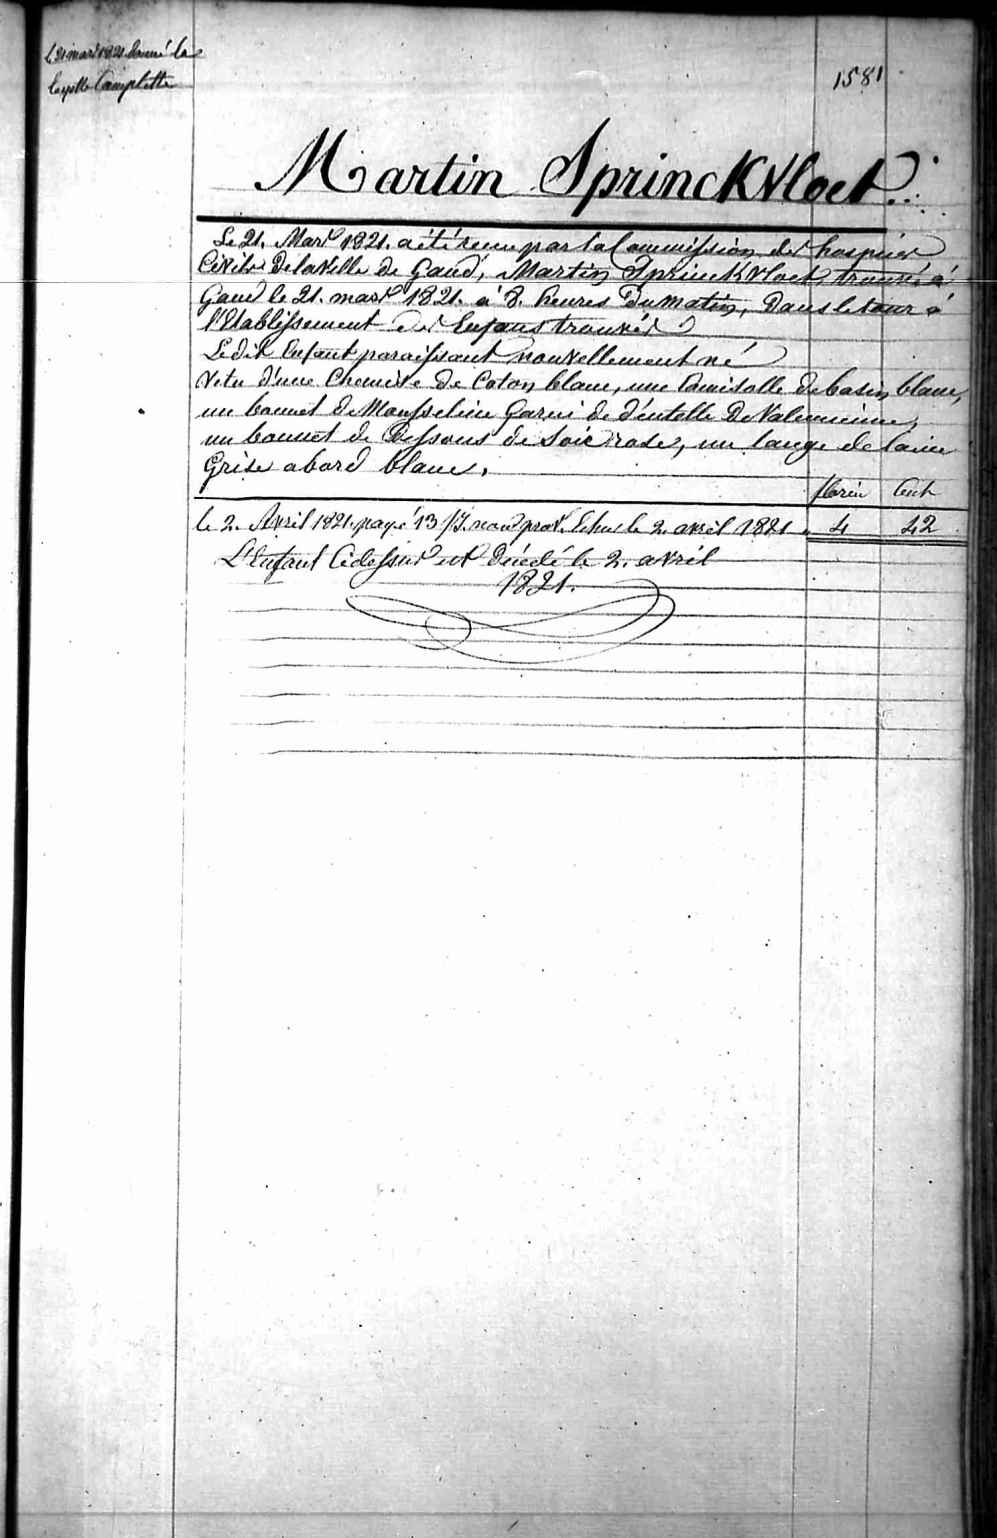 le 21 mars 1821 donné la
layette Complette
1581
Martin Sprinckvloet.
Le 21. Mars 1821. a été reçu par la Commission des hospices
Civils de la ville de Gand, Martin Sprinckvloet, trouvé à
Gand le 21. mars 1821. à 8. heures du matin, dans le tour à
l'Etablissement des Enfans trouvés
Le dit Enfant paraissant nouvellement né
Vetu d'une Chemise de Coton blanc, une Camisolle de basin blanc,
un bonnet de Mousseline Garni de dentelle De Valencienne,
un bonnet de Dessous de Soie rose, un lange de laine
Grise a bord blanc.
florin Cent
le 2. Avril 1821. payé 13 nour. prov. échus le 2. avril 1821 4 42
L'Enfant Cidessus est décédé le 2. avril
1821.